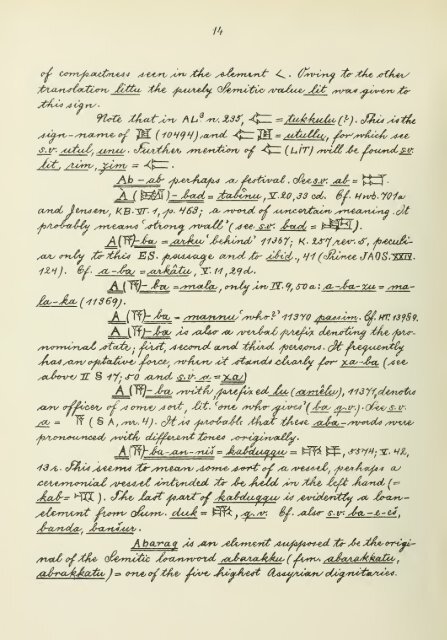 14
of compactness seen in the element 𒌋. Owing to the other
translation littu the purely Semitic value lit was given to
this sign.
Note that in AL³ n. 235, = tukkulu (?). This is the
sign-name of (10494) and = utullu, for which see
s.v. utul, unu. Further mention of (LIT) will be found s.v.
lit, rim, zim = .
Ab-ab perhaps a festival. See s.v. ab = .
A ( )-bad = tabînu, V. 20, 33 cd. Cf. Hwb. 701a
and Jensen, KB. VI. 1, p. 463; a word of uncertain meaning. It
probably means 'strong wall' (see s.v. bad = ).
A (𒀀)-ba = arku 'behind' 11367; K. 257 rev. 5, peculi-
ar only to this ES. passage and to ibid., 41 (Prince JAOS. XXIV.
124). Cf. a-ba = arkâtu, V. 11, 29d.
A (𒀀)-ba = mala, only in IV. 9, 50a: a-ba-zu = ma-
la-ka (11369).
A (𒀀)-ba = mannu 'who?' 11370 passim. Cf. HT. 139 § 9.
A (𒀀)-ba is also a verbal prefix denoting the pro-
nominal state; first, second and third persons. It frequently
has an optative force, when it stands clearly for χa-ba (see
above II § 17; 50 and s.v. a = χa)
A (𒀀)-ba with prefixed lu (amêlu), 11371, denotes
an officer of some sort, lit. 'one who gives' (ba q.v.). See s.v.
a = 𒀀 (§ A, nr. 4). It is probabl. that these aba-words were
pronounced with different tones originally.
A (𒀀)-ba-an-niš = kabduqqu = , 5574; V. 42,
13 e. This seems to mean some sort of a vessel, perhaps a
ceremonial vessel intended to be held in the left hand (=
kab = ). The last part of kabduqqu is evidently a loan-
element from Sum. duk = , q.v. Cf. also s.v. ba-e-eš,
banda, banšur.
Abarag is an element supposed to be the origi-
nal of the Semitic loanword abarakku (fem. abarakkatu,
abrakkatu) = one of the five highest Assyrian dignitaries.